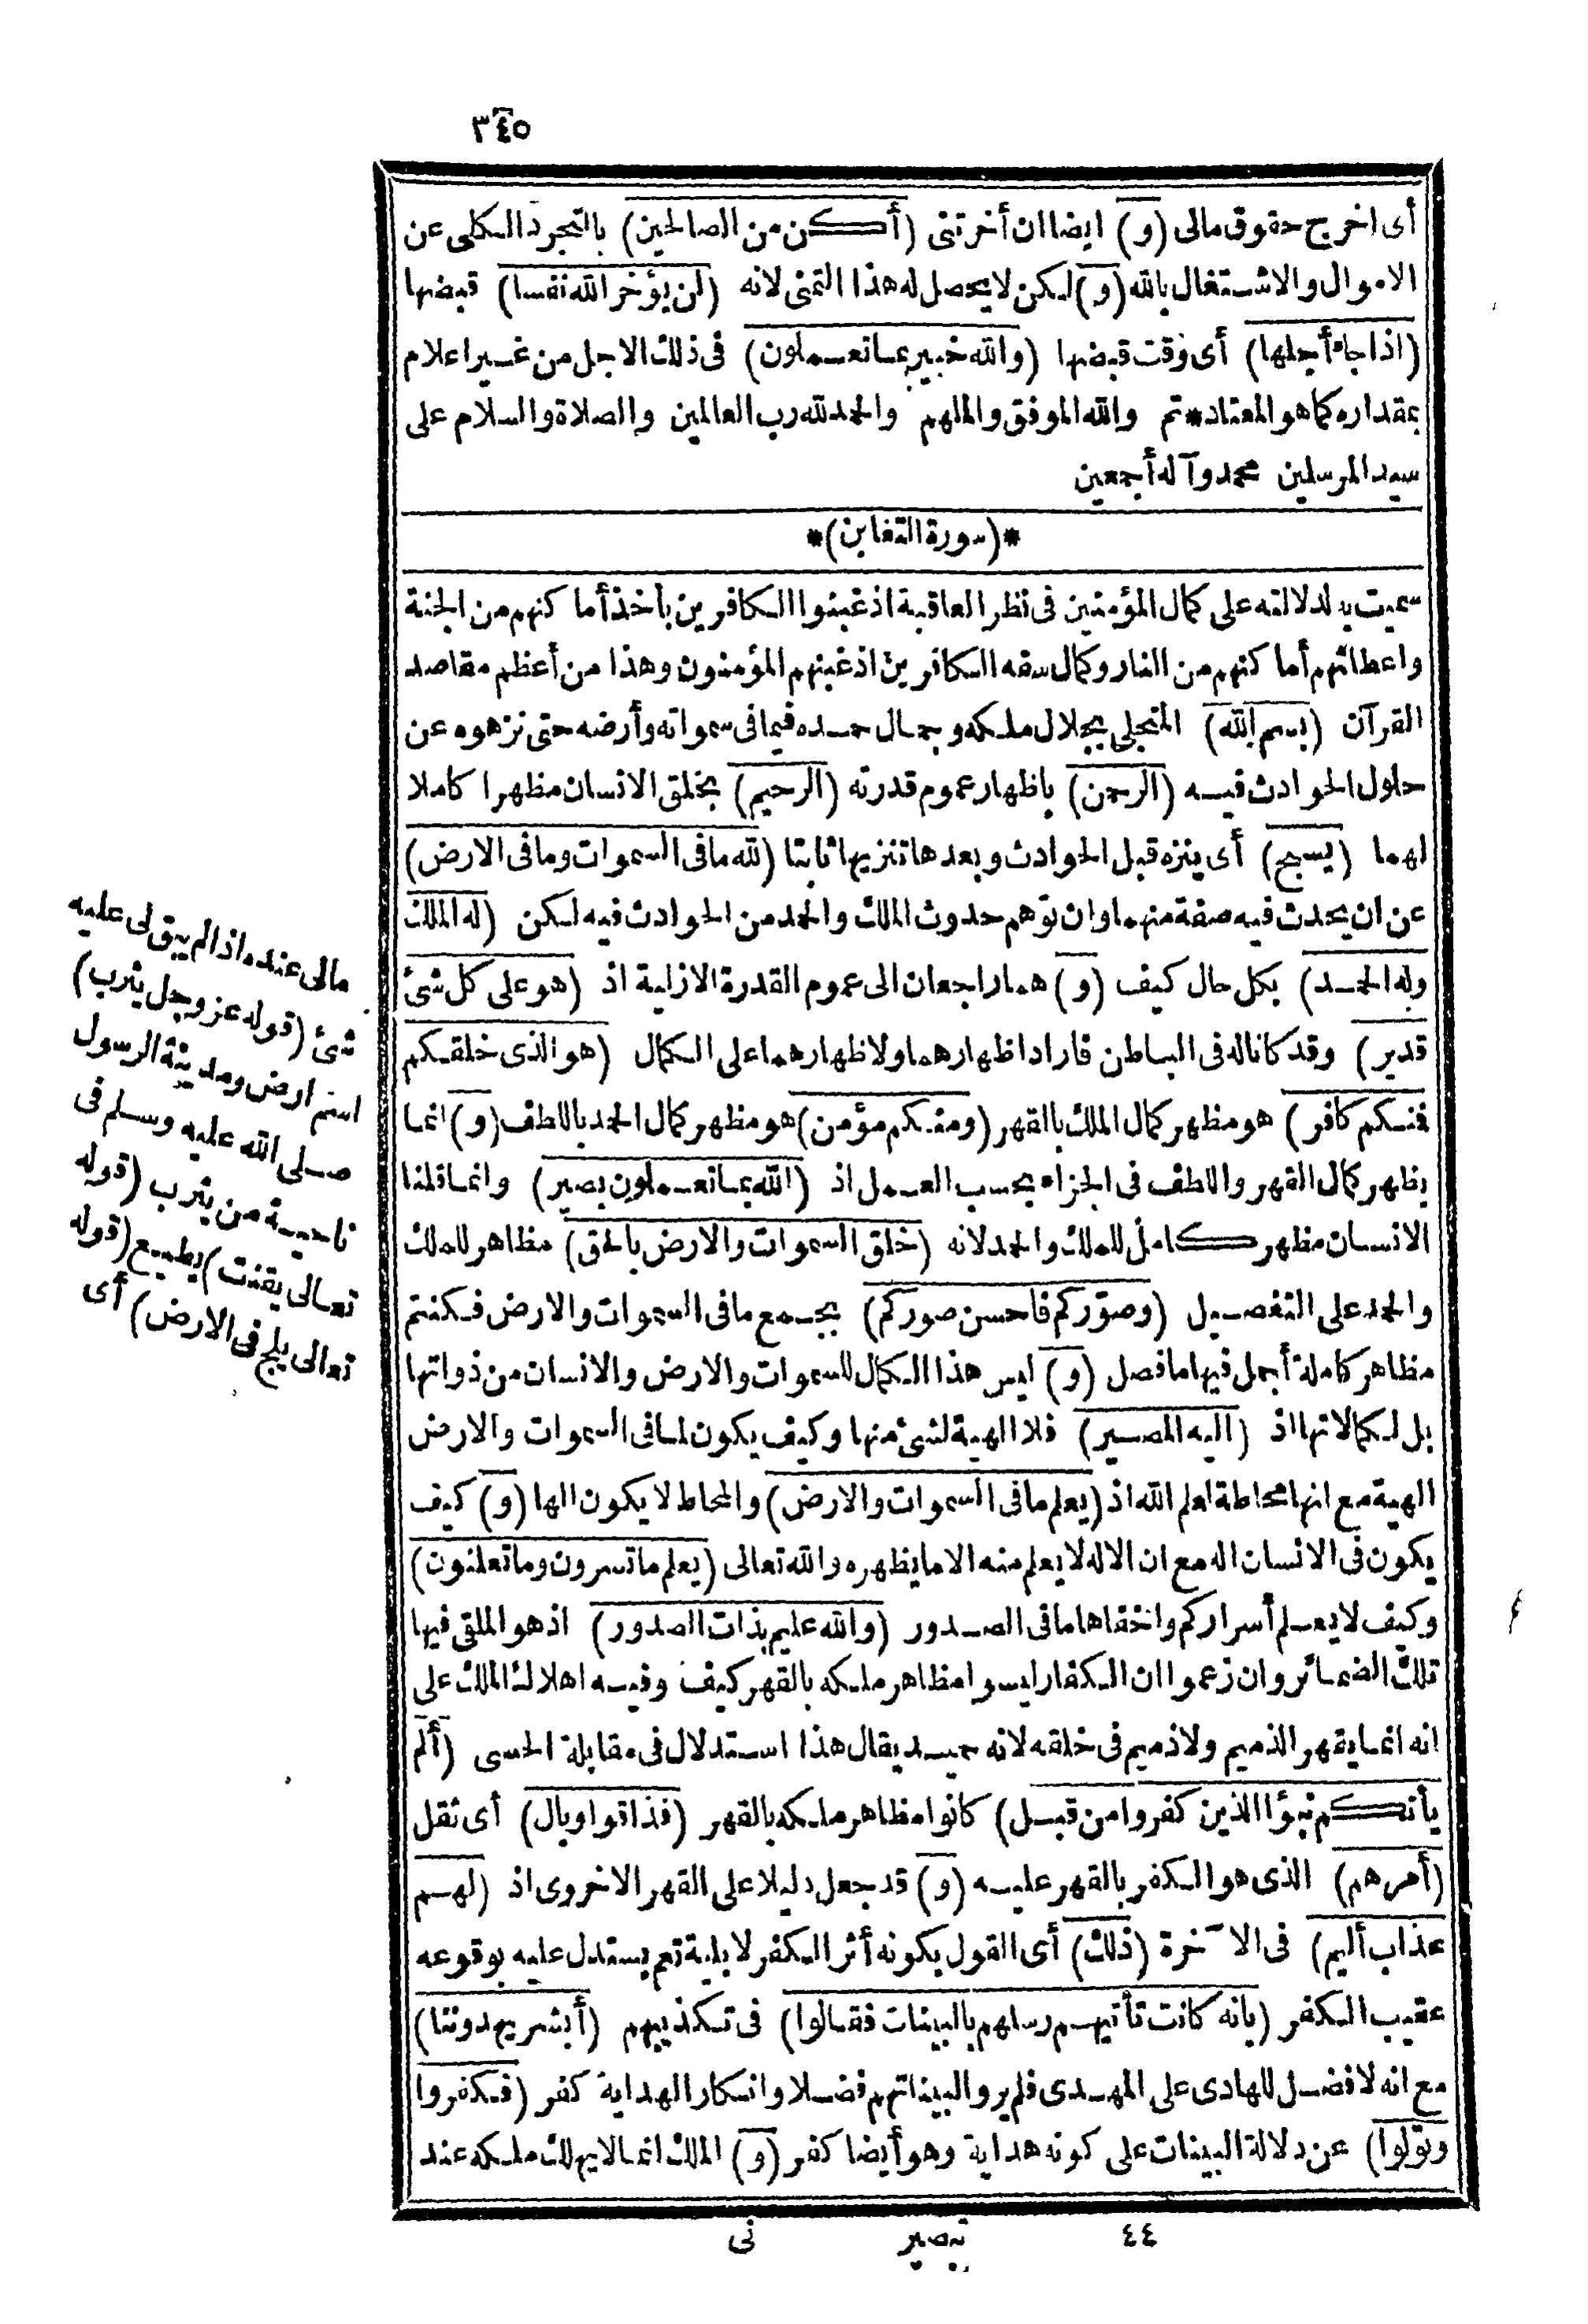 ٣٤٥
أى اخرج حقوق مالى (و) ايضا ان أخرتنى (أكن من الصالحين) بالتجرد الكلى عن
الاموال والاشتغال بالله (و) لكن لا يحصل له هذا التمنى لانه (لن يؤخر الله نفسا) قبضها
(اذا جاء أجلها) أى وقت قبضها (والله خبير بما تعملون) فى ذلك الاجل من غير اعلام
بمقداره كما هو المعتاد * تم والله الموفق والملهم والحمد لله رب العالمين والصلاة والسلام على
سيد المرسلين محمد وآله أجمعين
*(سورة التغابن)*
سميت به لدلالته على كمال المؤمنين فى نظر العاقبة اذ غبنوا الكافرين بأخذ أماكنهم من الجنة
واعطائهم أماكنهم من النار وكمال سفه الكافرين اذ غبنهم المؤمنون وهذا من أعظم مقاصد
القرآن (بسم الله) المتجلى بجلال ملكه وجمال حمده فيما فى سمواته وأرضه حتى نزهوه عن
حلول الحوادث فيه (الرحمن) باظهار عموم قدرته (الرحيم) بخلق الانسان مظهرا كاملا
لهما (يسبح) أى ينزه قبل الحوادث وبعدها تنزيها ثابتا (لله ما فى السموات وما فى الارض)
عن ان يحدث فيه صفة منهما وان توهم حدوث الملك والحمد من الحوادث فيه لكن (له الملك
وله الحمد) بكل حال كيف (و) هما راجعان الى عموم القدرة الازلية اذ (هو على كل شئ
قدير) وقد كانا له فى الباطن فاراد اظهارهما ولاظهارهما على الكمال (هو الذى خلقكم
فمنكم كافر) هو مظهر كمال الملك بالقهر (ومنكم مؤمن) هو مظهر كمال الحمد باللطف (و) انما
يظهر كمال القهر واللطف فى الجزاء بحسب العمل اذ (الله بما تعملون بصير) وانما قلنا
الانسان مظهر كامل للملك والحمد لانه (خلق السموات والارض بالحق) مظاهر للملك
والحمد على التفصيل (وصوّركم فاحسن صوركم) بجمع ما فى السموات والارض فكنتم
مظاهر كاملة أجمل فيها ما فصل (و) ليس هذا الكمال للسموات والارض والانسان من ذواتها
بل لكمالاتها اذ (اليه المصير) فلا الهية لشئ منها وكيف يكون لما فى السموات والارض
الهية مع انها محاطة لعلم الله اذ (يعلم ما فى السموات والارض) والمحاط لا يكون الها (و) كيف
يكون فى الانسان اله مع ان الاله لا يعلم منه الا ما يظهره والله تعالى (يعلم ما تسرون وما تعلنون)
وكيف لا يعلم أسراركم واخفاها ما فى الصدور (والله عليم بذات الصدور) اذ هو الملقى فيها
تلك الضمائر وان زعموا ان الكفار ليسوا مظاهر ملكه بالقهر كيف وفيه اهلاك الملك على
انه انما يقهر الذميم ولا ذميم فى خلقه لانه حميد يقال هذا استدلال فى مقابلة الحسى (ألم
يأتكم نبؤا الذين كفروا من قبل) كانوا مظاهر ملكه بالقهر (فذاقوا وبال) أى ثقل
(أمرهم) الذى هو الكفر بالقهر عليه (و) قد جعل دليلا على القهر الاخروى اذ (لهم
عذاب أليم) فى الآخرة (ذلك) أى القول بكونه أثر الكفر لا بلية تعم يستدل عليه بوقوعه
عقيب الكفر (بانه كانت تأتيهم رسلهم بالبينات فقالوا) فى تكذيبهم (أبشر يهدوننا)
مع انه لا فضل للهادى على المهدى فلم يروا لبيناتهم فضلا وانكار الهداية كفر (فكفروا
وتولوا) عن دلالة البينات على كونه هداية وهو أيضا كفر (و) الملك انما لا يهلك ملكه عند
٤٤ تبصير نى
مالى عنده اذا لم يبق لى عليه
شئ (قوله عز وجل يثرب)
اسم ارض ومدينة الرسول
صلى الله عليه وسلم فى
ناحية من يثرب (قوله
تعالى يقنت) يطيع (قوله
تعالى يلج فى الارض) أى